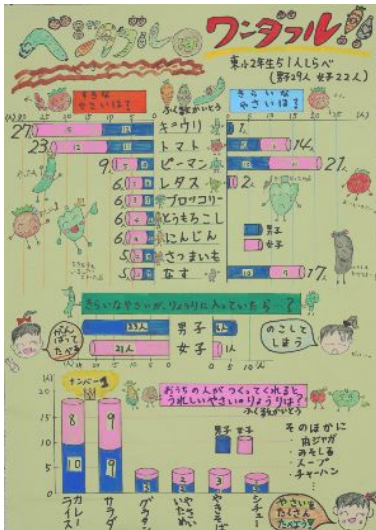 ベジタブル ワンダフル!!
東小2年生51人しらべ
(男子29人 女子22人)
すきなやさいは?
ふくすうかいとう
きらいなやさいは?
27人 キュウリ 1人
23人 トマト 14人
9人 ピーマン 21人
6人 レタス 2人
6人 ブロッコリー
6人 とうもろこし
6人 にんじん
5人 さつまいも
5人 なす 17人
男子
女子
きらいなやさいが、りょうりに入っていたら…?
がんばってたべる
のこしてしまう
男子
21人 女子 1人
ナンバー1
おうちの人がつくってくれるとうれしいやさいのりょうりは?
ふくすうかいとう
男子 女子
8 9
10 9
カレーライス
サラダ
やさいいため
やきそば
シチュー
そのほかに
肉ジャガ
みそしる
スープ
チャーハン
やさいをたくさんたべようね